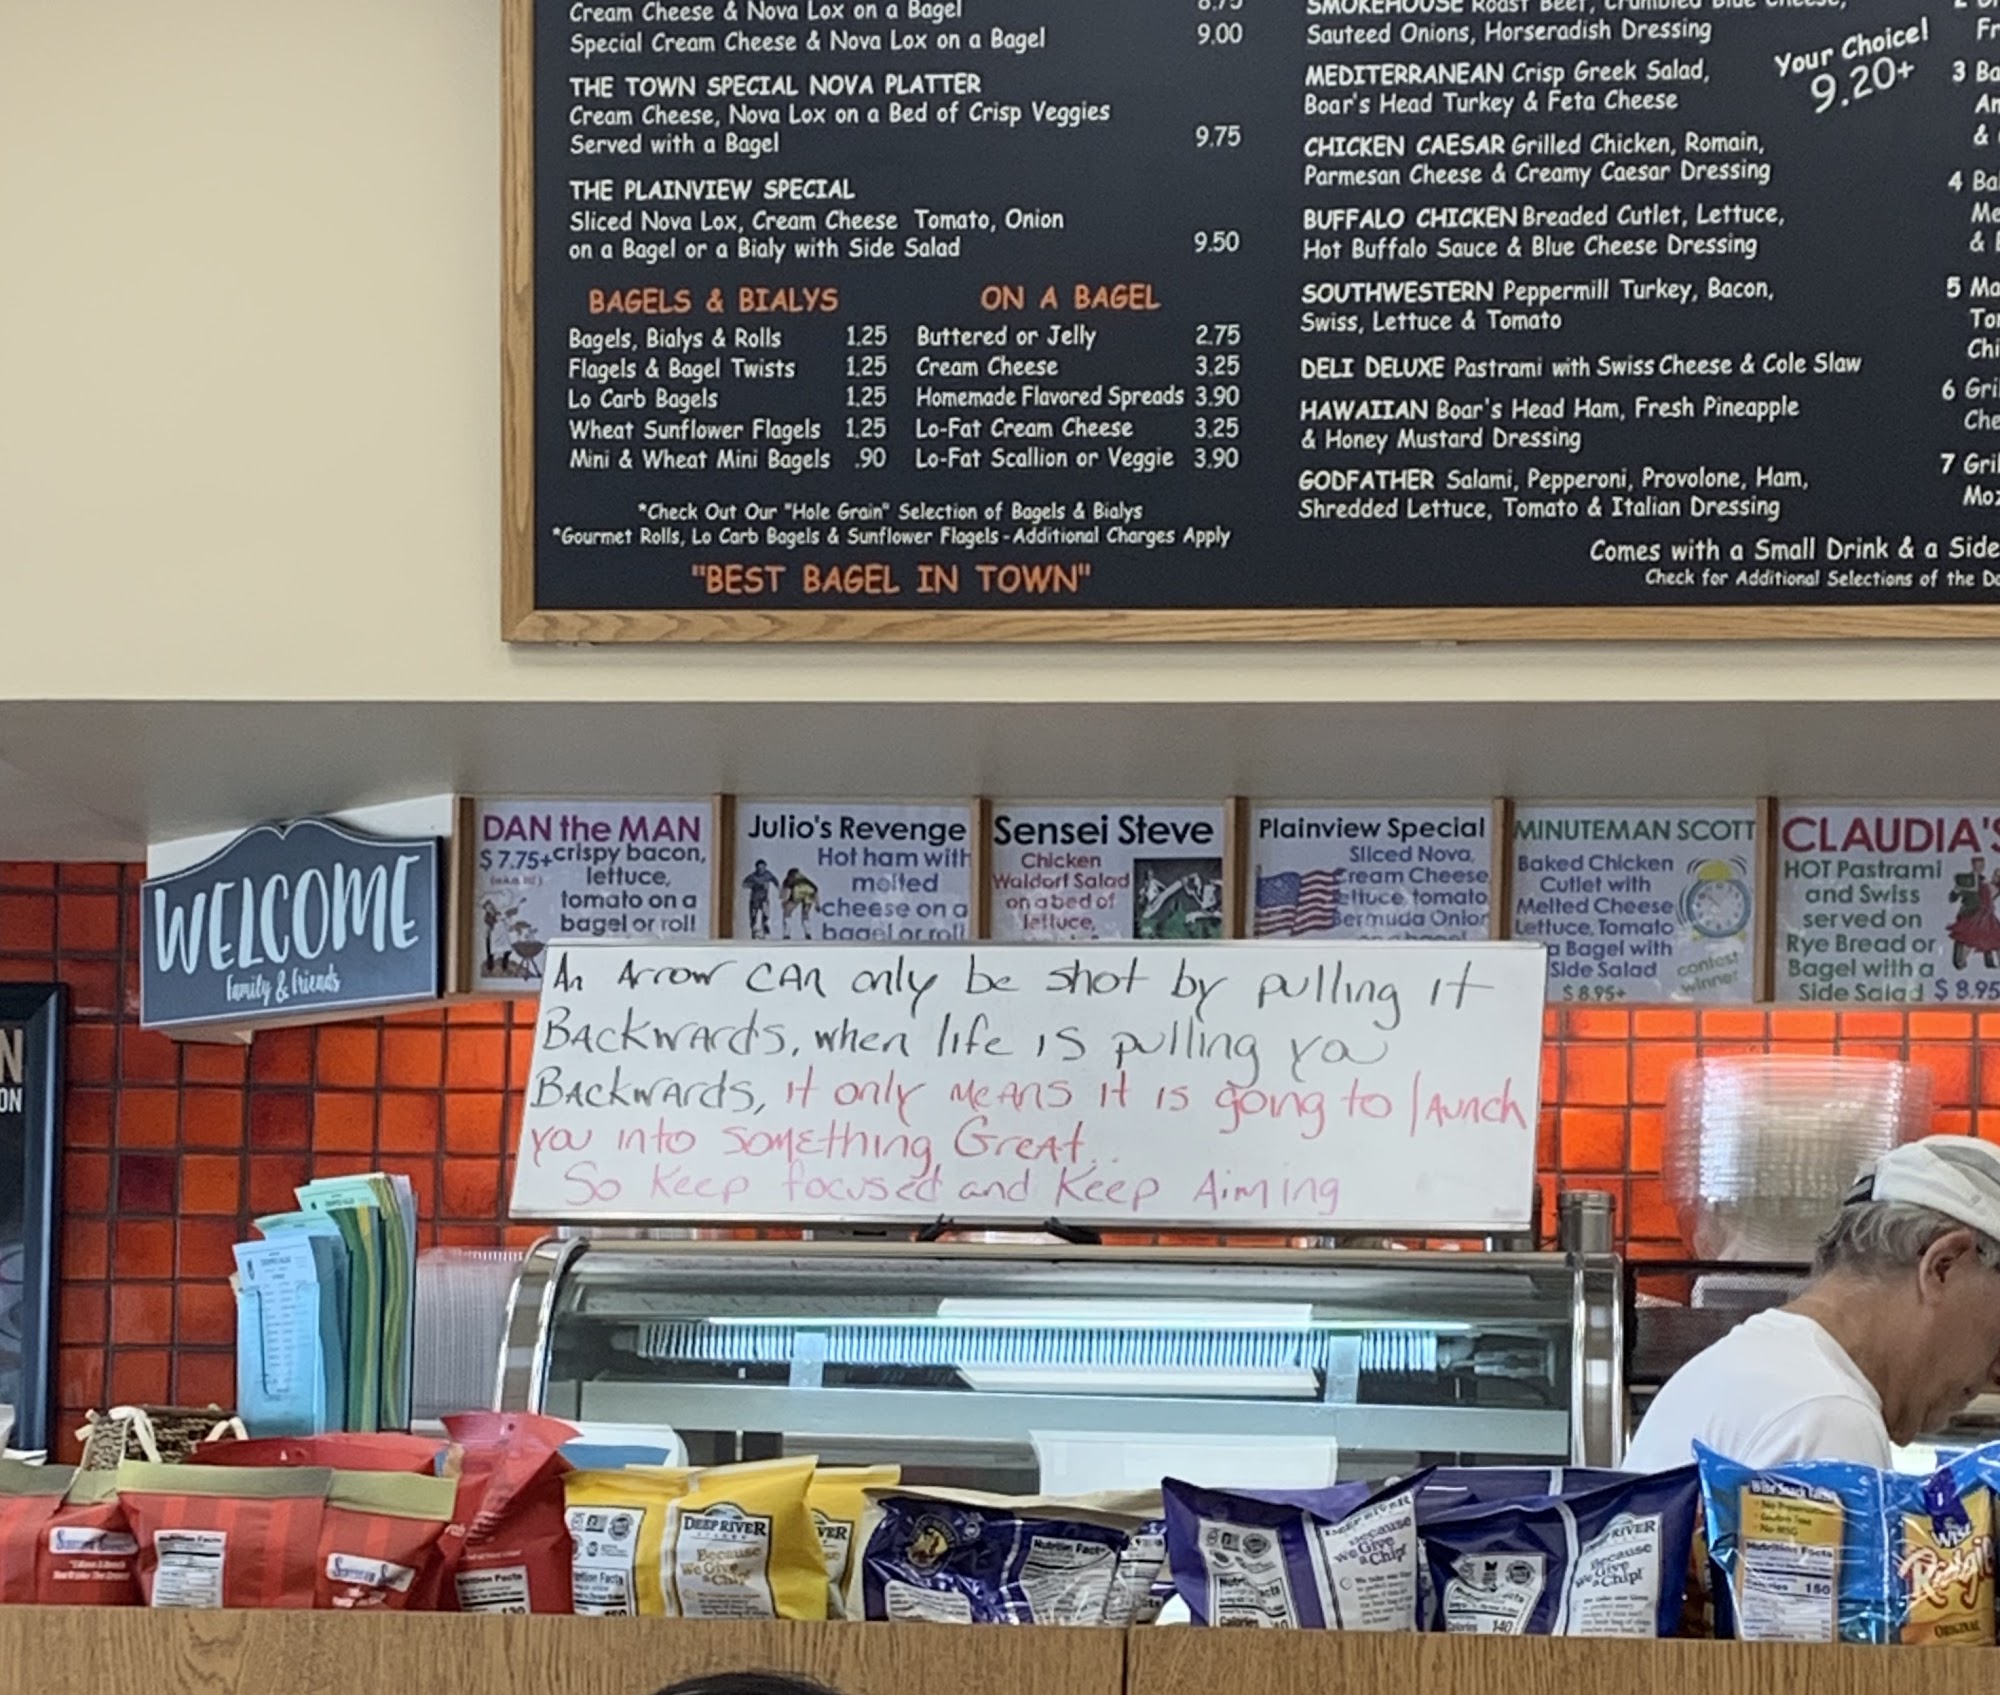 Cream Cheese & Nova Lox on a Bagel 8.75
Special Cream Cheese & Nova Lox on a Bagel 9.00
THE TOWN SPECIAL NOVA PLATTER
Cream Cheese, Nova Lox on a Bed of Crisp Veggies
Served with a Bagel 9.75
THE PLAINVIEW SPECIAL
Sliced Nova Lox, Cream Cheese Tomato, Onion
on a Bagel or a Bialy with Side Salad 9.50
BAGELS & BIALYS
Bagels, Bialys & Rolls 1.25
Flagels & Bagel Twists 1.25
Lo Carb Bagels 1.25
Wheat Sunflower Flagels 1.25
Mini & Wheat Mini Bagels .90
ON A BAGEL
Buttered or Jelly 2.75
Cream Cheese 3.25
Homemade Flavored Spreads 3.90
Lo-Fat Cream Cheese 3.25
Lo-Fat Scallion or Veggie 3.90
*Check Out Our "Hole Grain" Selection of Bagels & Bialys
*Gourmet Rolls, Lo Carb Bagels & Sunflower Flagels - Additional Charges Apply
"BEST BAGEL IN TOWN"
SMOKEHOUSE Roast Beef, Crumbled Blue Cheese,
Sauteed Onions, Horseradish Dressing
MEDITERRANEAN Crisp Greek Salad,
Boar's Head Turkey & Feta Cheese
Your Choice!
9.20+
CHICKEN CAESAR Grilled Chicken, Romain,
Parmesan Cheese & Creamy Caesar Dressing
BUFFALO CHICKEN Breaded Cutlet, Lettuce,
Hot Buffalo Sauce & Blue Cheese Dressing
SOUTHWESTERN Peppermill Turkey, Bacon,
Swiss, Lettuce & Tomato
DELI DELUXE Pastrami with Swiss Cheese & Cole Slaw
HAWAIIAN Boar's Head Ham, Fresh Pineapple
& Honey Mustard Dressing
GODFATHER Salami, Pepperoni, Provolone, Ham,
Shredded Lettuce, Tomato & Italian Dressing
Comes with a Small Drink & a Side
Check for Additional Selections of the
3
&
4
Me
&
5
6
7
WELCOME
family & friends
DAN the MAN
$7.75+ crispy bacon,
lettuce,
tomato on a
bagel or roll
Julio's Revenge
Hot ham with
melted
cheese on a
bagel or roll
Sensei Steve
Chicken
Waldorf Salad
on a bed of
lettuce,
Plainview Special
Sliced Nova,
Cream Cheese,
lettuce, tomato
Bermuda Onion
MINUTEMAN SCOTT
Baked Chicken
Cutlet with
Melted Cheese
Lettuce, Tomato
a Bagel with
Side Salad
$8.95+
contest
winner
CLAUDIA'S
HOT Pastrami
and Swiss
served on
Rye Bread or
Bagel with a
Side Salad $8.95
An Arrow CAn only be shot by pulling it
Backwards, when life is pulling you
Backwards, it only MeAns it is going to launch
you into something Great..
So Keep focused and Keep Aiming
N
ON
Nutrition Facts
DEEP RIVER
Because
We Give
a Chip!
Nutrition Facts
Because
We Give
a Chip!
Calories 140
RIVER
Because
We Give
a Chip!
Nutrition Facts
Calories 150
WISE
Ridgi
ORIGINAL